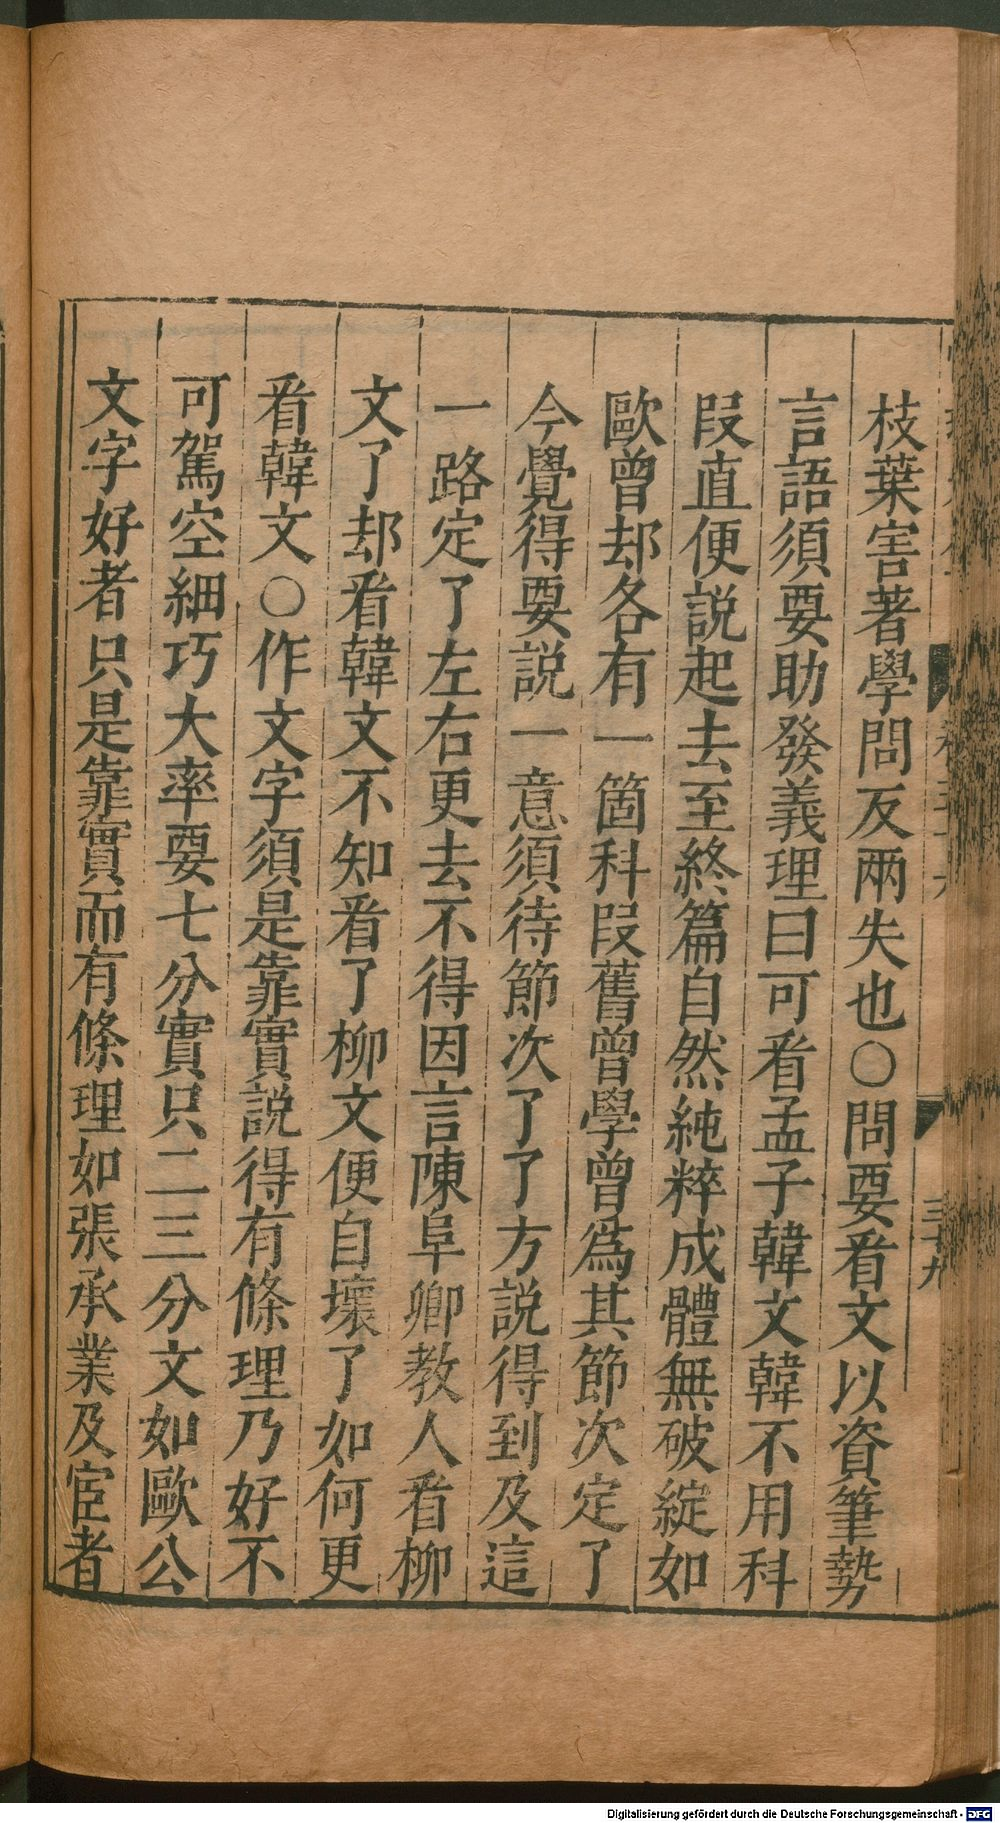 枝葉害著學問反兩失也○問要㸔文以資筆勢
言語須要助發義理曰可㸔孟子韓文韓不用科
段直便説起去至終篇自然純粹成體無破綻如
歐曾却各有一箇科段舊曾學曾爲其節次定了
今覺得要説一意須待節次了了方説得到及這
一路定了左右更去不得因言陳阜卿教人㸔柳
文了却㸔韓文不知㸔了柳文便自壞了如何更
㸔韓文○作文字須是靠實説得有條理乃好不
可駕空細巧大率要七分實只二三分文如歐公
文字好者只是靠實而有條理如張承業及宦者
三十九
Digitalisierung gefördert durch die Deutsche Forschungsgemeinschaft - DFG